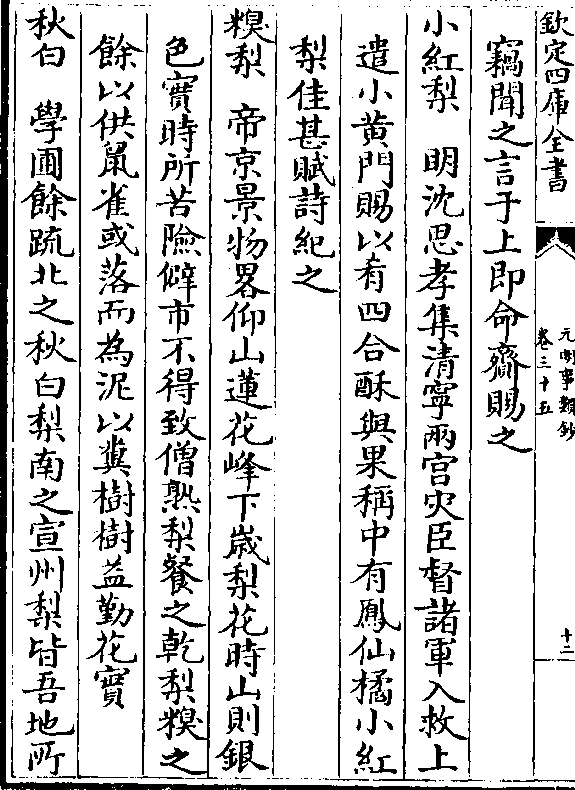 欽定四庫全書
元明事類鈔
卷三十五
十二
竊聞之言于上即命齎賜之
小紅梨　明沈思孝集清寧兩宫灾臣督諸軍入救上
遣小黄門賜以肴四合酥與果稱中有鳳仙橘小紅
梨佳甚賦詩紀之
糗梨　帝京景物畧仰山蓮花峰下歲梨花時山則銀
色實時所苦險僻市不得致僧熟梨餐之乾梨糗之
餘以供鼠雀或落而為泥以糞樹樹益勤花實
秋白　學圃餘疏北之秋白梨南之宣州梨皆吾地所